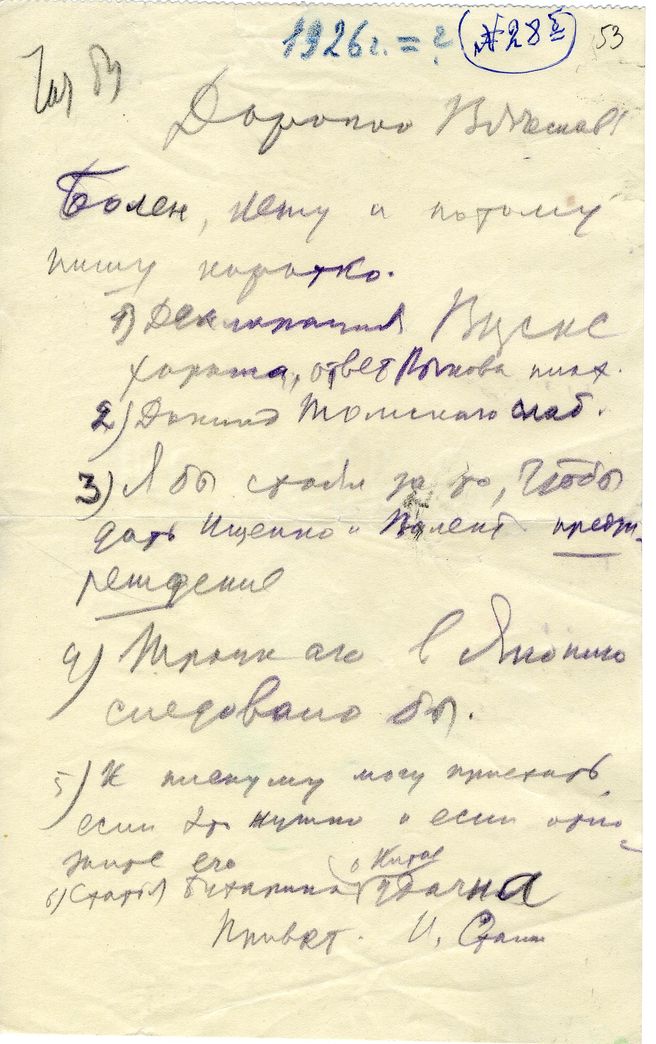 1926 г. = ? № 28 б 53
Дорогой Вячеслав!
Болен, лежу и потому
пишу коротко.
1) Декларация ВЦСПС
хороша, ответ Рыкова плох.
2) Доклад Томского слаб.
3) Я бы стоял за то, чтобы
дать Ищенко и Валент предуп-
реждение
4) Троцкого в Японию
следовало бы.
5) К пленуму могу приехать,
если это нужно и если отло-
жите его
о Китае
6) Статья Бухарина удачна
Привет. И. Сталин